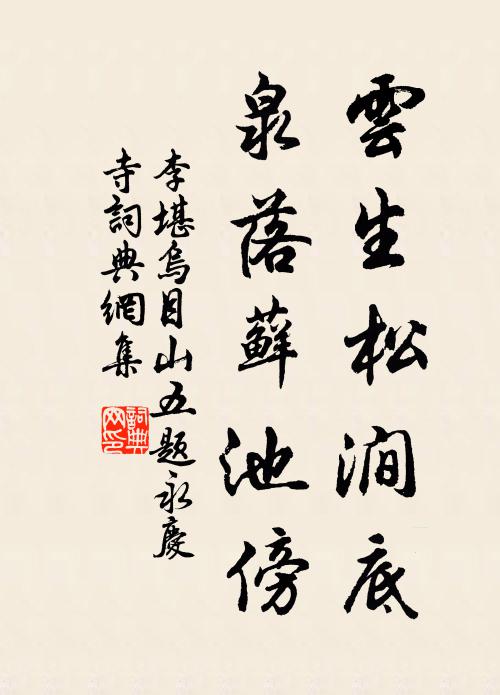 雲生松澗底
泉落蘚池傍
李堪烏目山五題永慶
寺詞典網集
詞典网印